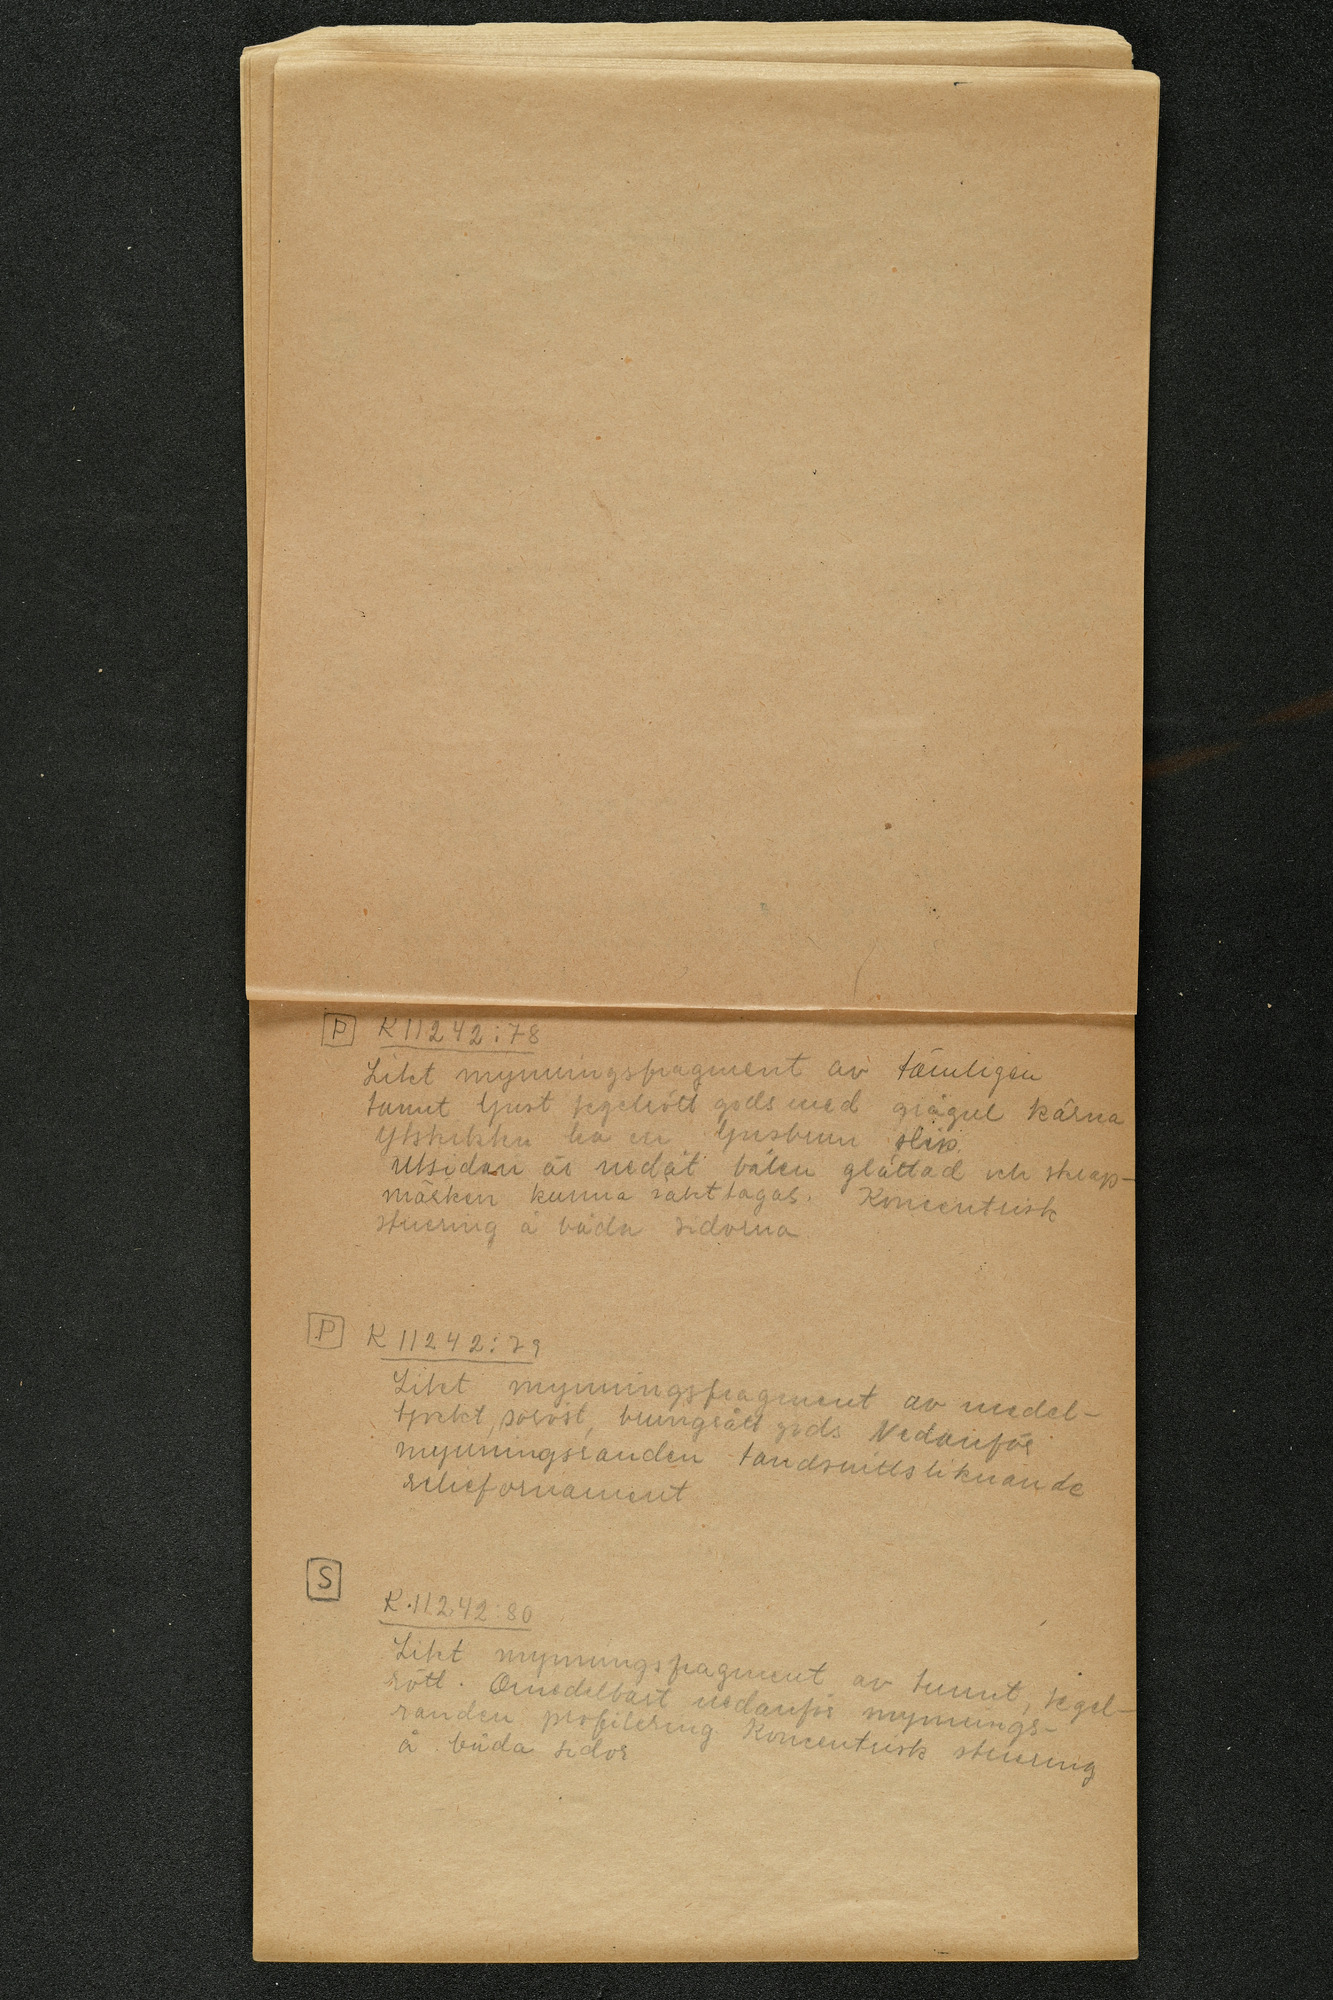 P K 11242:78
Litet mynningsfragment av tämligen
tunnt ljust tegelrött gods med grågul kärna
Ytskikten ha en ljusbrun slip.
Utsidan är nedåt buken glättad och skrap-
märken kunna iakttagas. Koncentrisk
striering å båda sidorna
P K 11242:79
Litet mynningsfragment av medel-
tjockt, poröst, brungrått gods Nedanför
mynningsranden tandsnittsliknande
reliefornament
S
K.11242:80
Litet mynningsfragment av tunnt, tegel-
rött. Omedelbart nedanför mynnings-
randen profilering Koncentrisk striering
å båda sidor